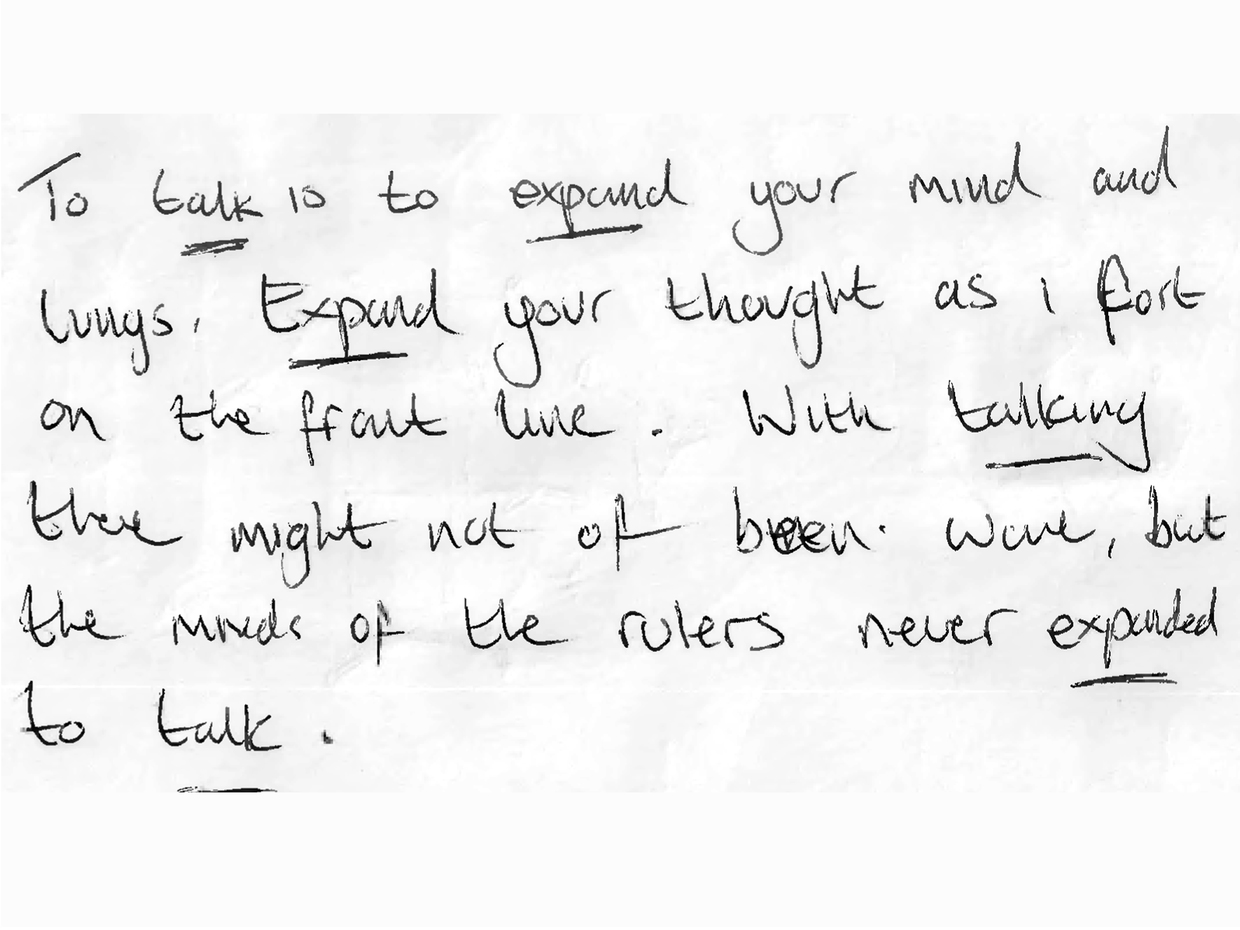 To talk is to expand your mind and
lungs. Expand your thought as i fort
on the front line. With talking
there might not of been wore, but
the minds of the rulers never expanded
to talk.